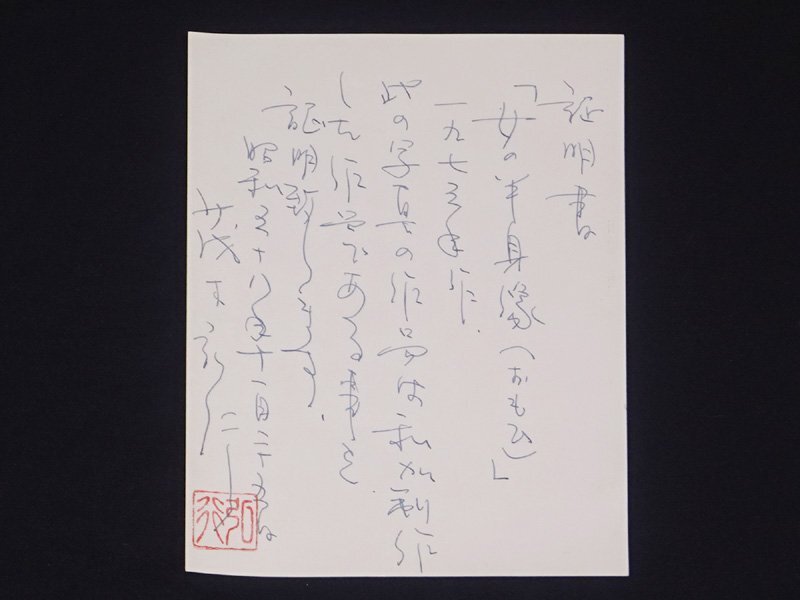 証明書
「女の半身像（おもひ）」
一九七三年作.
此の写真の作品は私が制作
した作品である事を
証明致します.
昭和五十八年十一月二十五日